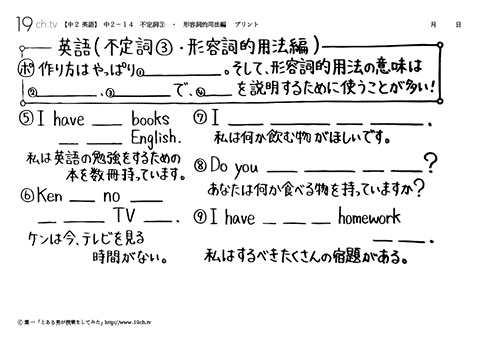 19ch.tv 【中2 英語】 中2-14 不定詞③ ・ 形容詞的用法編 プリント 月 日
英語(不定詞③・形容詞的用法編)
ポ 作り方はやっぱり①____。そして、形容詞的用法の意味は
②____、③____で、④____を説明するために使うことが多い!
⑤I have ___ books
___ ___ English.
私は英語の勉強をするための
本を数冊持っています。
⑥Ken ___ no ___
___ ___ TV ___.
ケンは今、テレビを見る
時間がない。
⑦I ___ ___ ___ ___.
私は何か飲む物がほしいです。
⑧Do you ___ ___ ___ ___?
あなたは何か食べる物を持っていますか?
⑨I have ___ ___ ___ homework
___ ___.
私はするべきたくさんの宿題がある。
© 葉一「とある男が授業をしてみた」http://www.19ch.tv